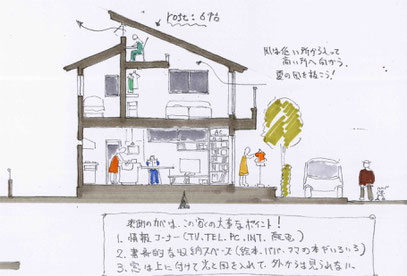 風は低い所から入って
高い所へ向かう。
夏の風を抜こう!
AC
断面のかべは、この家の大事なポイント!
1. 情報コーナー(TV.TEL.PC.INT.
2. 書長的な収納スペース(絵本、パパ・ママの本がいろいろ)
3. 窓は上に付けて光と風を入れて、外からは見られない。